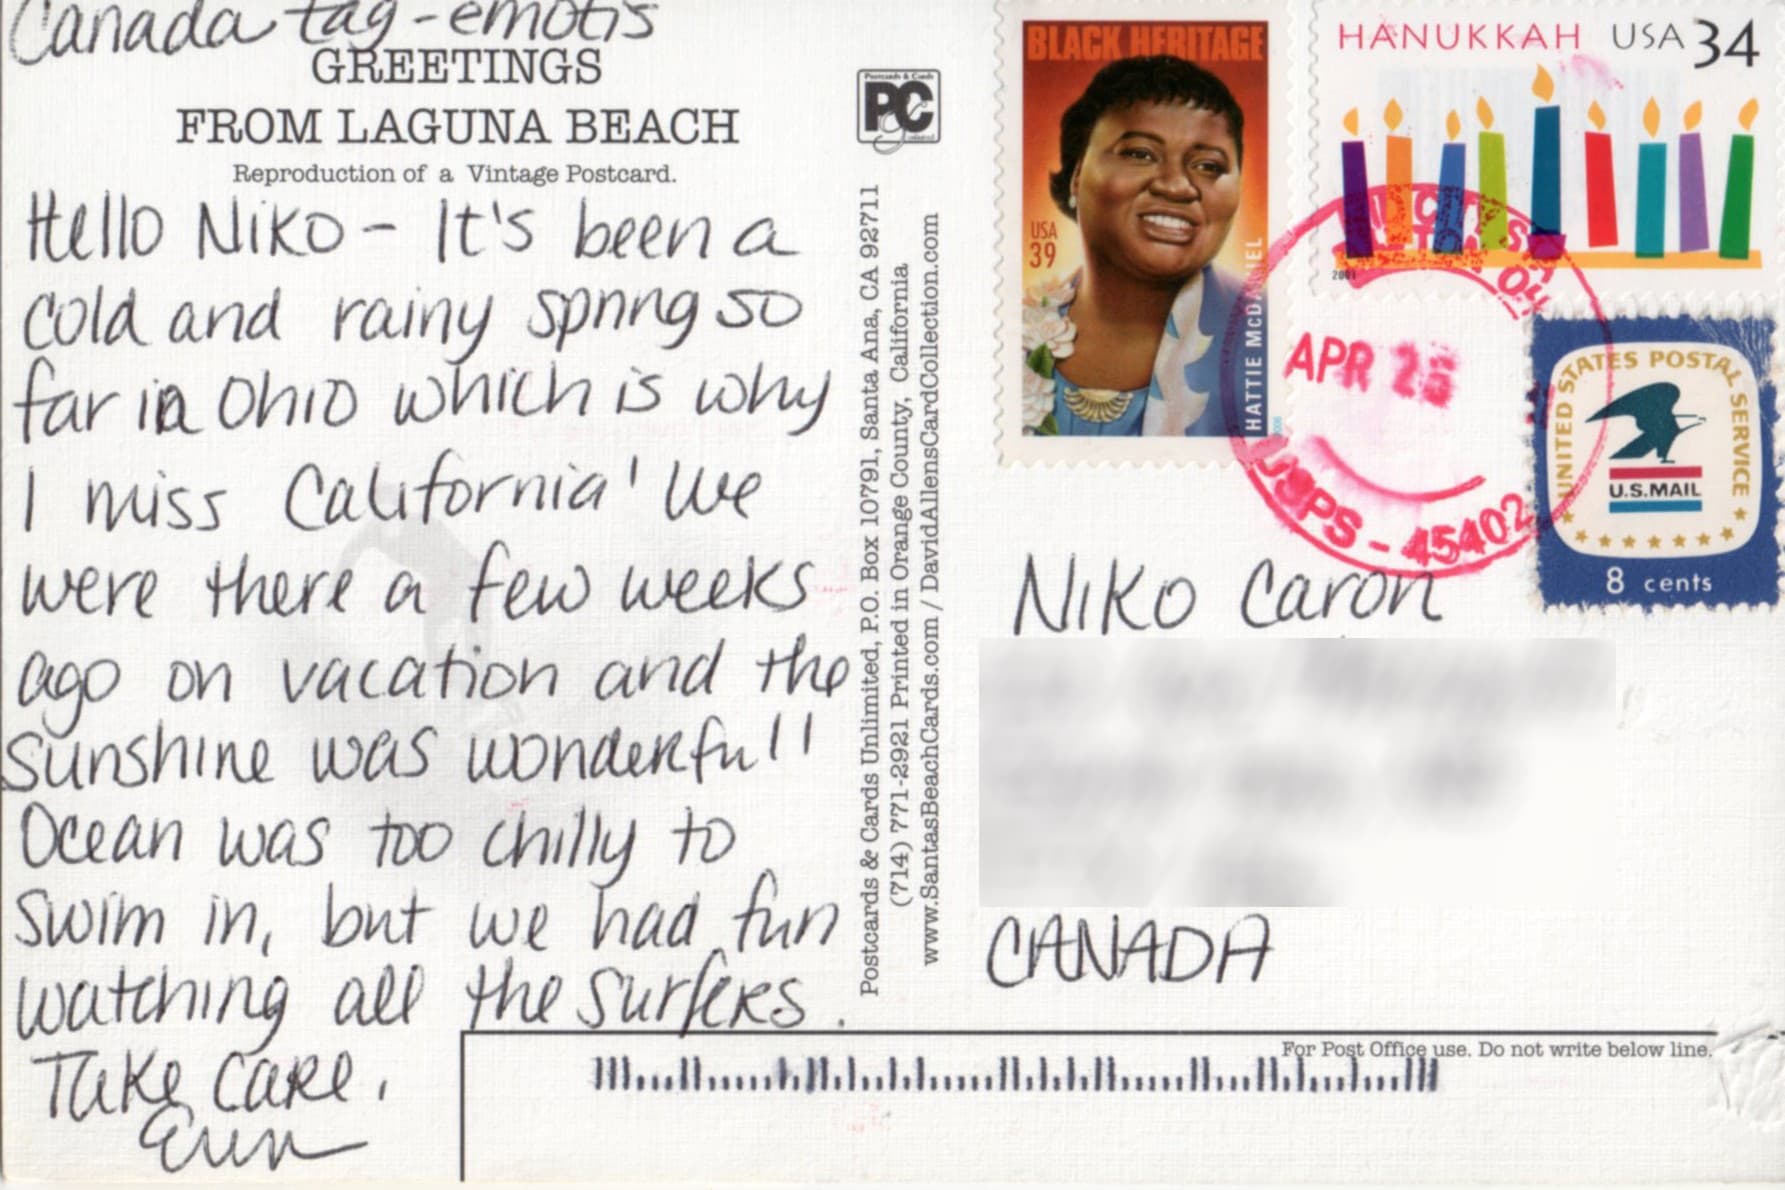 Canada tag - emotis
GREETINGS
FROM LAGUNA BEACH
Reproduction of a Vintage Postcard.
Hello Niko - It's been a
cold and rainy spring so
far in Ohio which is why
I miss California! We
were there a few weeks
ago on vacation and the
sunshine was wonderful!
Ocean was too chilly to
swim in, but we had fun
watching all the surfers.
Take care,
Erin
Postcards & Cards
PC
Postcards & Cards Unlimited, P.O. Box 10791, Santa Ana, CA 92711
(714) 771-2921 Printed in Orange County, California
www.SantasBeachCards.com / DavidAllensCardCollection.com
BLACK HERITAGE
USA
39
HATTIE McDANIEL
HANUKKAH USA 34
2001
APR 25
USPS - 45402
UNITED STATES POSTAL SERVICE
U.S.MAIL
8 cents
Niko Caron
CANADA
For Post Office use. Do not write below line.